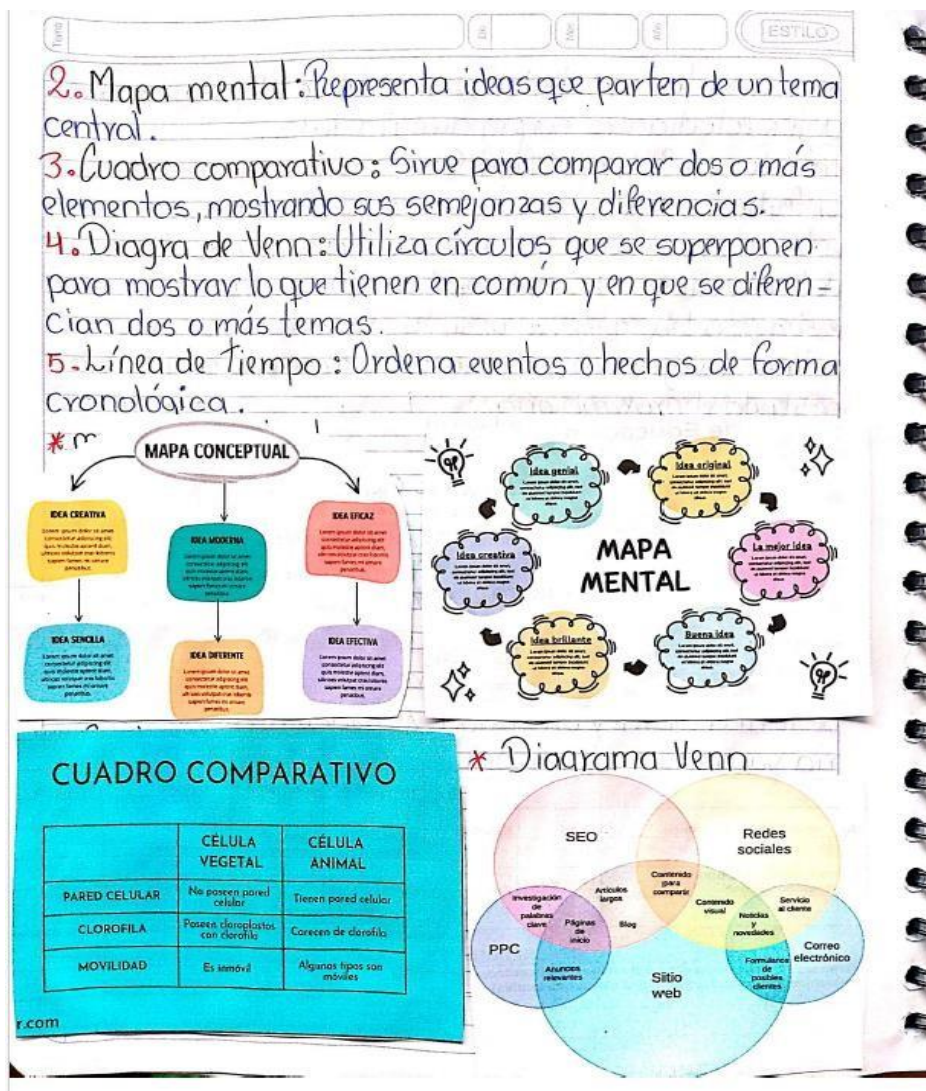 ESTILO
2. Mapa mental: Representa ideas que parten de un tema
central.
3. Cuadro comparativo: Sirve para comparar dos o más
elementos, mostrando sus semejanzas y diferencias.
4. Diagra de Venn: Utiliza círculos que se superponen
para mostrar lo que tienen en común y en que se diferen-
cian dos o más temas.
5. Línea de Tiempo: Ordena eventos o hechos de forma
cronológica.
MAPA CONCEPTUAL
IDEA CREATIVA
IDEA MODERNA
IDEA EFICAZ
IDEA SENCILLA
IDEA DIFERENTE
IDEA EFECTIVA
MAPA
MENTAL
Idea genial
Idea original
Idea creativa
La mejor idea
Idea brillante
Buena idea
CUADRO COMPARATIVO
CÉLULA
VEGETAL
CÉLULA
ANIMAL
PARED CELULAR
No poseen pared
celular
Tienen pared celular
CLOROFILA
Poseen cloroplastos
con clorofila
Carecen de clorofila
MOVILIDAD
Es inmóvil
Algunos tipos son
móviles
r.com
* Diagrama Venn
SEO
Redes
sociales
Contenido
para
compartir
Artículos
largos
Investigación
de
palabras
clave
Páginas
de
inicio
Blog
Contenido
visual
Servicio
al cliente
Noticias
y
novedades
PPC
Anuncios
relevantes
Sitio
web
Formularios
de
posibles
clientes
Correo
electrónico